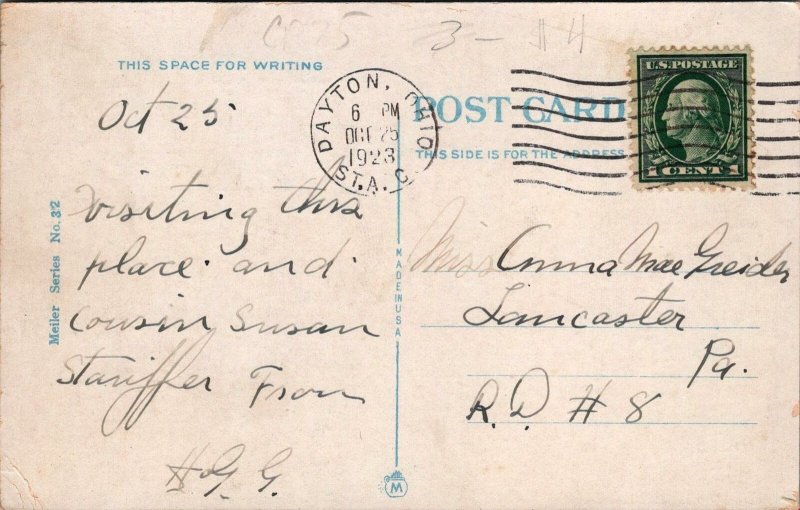 CP75 3- $4
THIS SPACE FOR WRITING
Oct 25
Visiting this
place and
Cousin Susan
Stauffer From
H. G. G.
Meiler Series No. 32
MADE IN USA
M
DAYTON, OHIO
6 PM
OCT 25
1923
STA. C.
POST CARD
THIS SIDE IS FOR THE ADDRESS
U.S. POSTAGE
1 CENT 1
Miss Anna Mae Greider
Lancaster
Pa.
R. D # 8